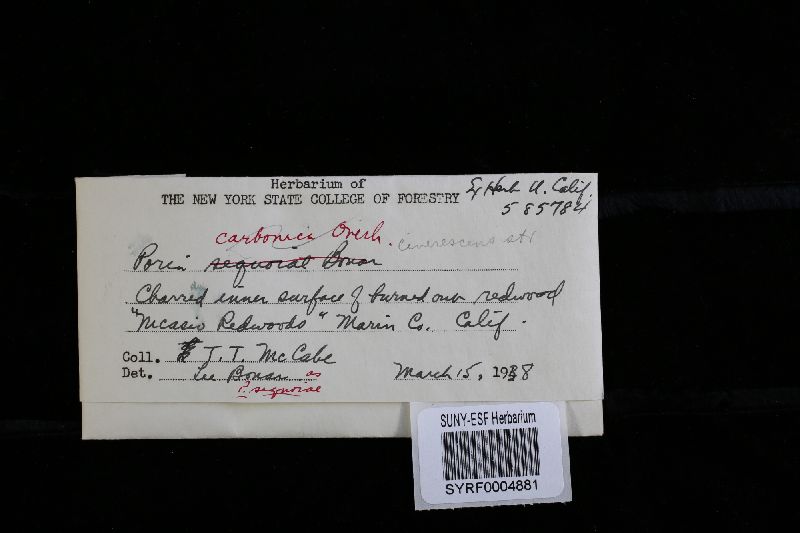 Herbarium of
THE NEW YORK STATE COLLEGE OF FORESTRY
Ex Herb U. Calif.
585784
carbonica Overh. cinerescens
Poria sequoiae Bonar
Charred inner surface of burned out redwood
"Nicasio Redwoods" Marin Co. Calif.
Coll. T. T. McCabe
Det. Lee Bonar as March 15, 1938
P. sequoiae
SUNY-ESF Herbarium
SYRF0004881